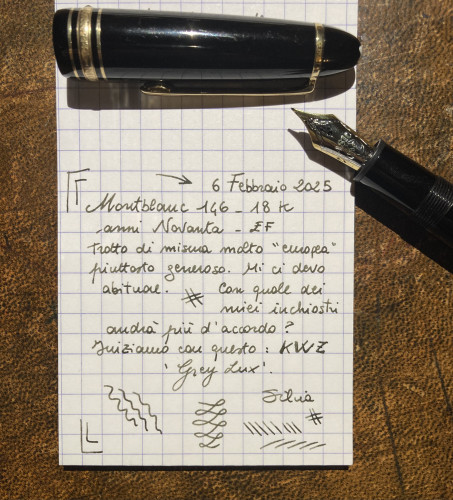 6 Febbraio 2025
Montblanc 146 - 18 K
anni Novanta - EF
tratto di misura molto "europea"
piuttosto generoso. Mi ci devo
abituare. # Con quale dei
miei inchiostri
andrà più d'accordo?
Iniziamo con questo: KWZ
'Grey Lux'.
Silvia
#